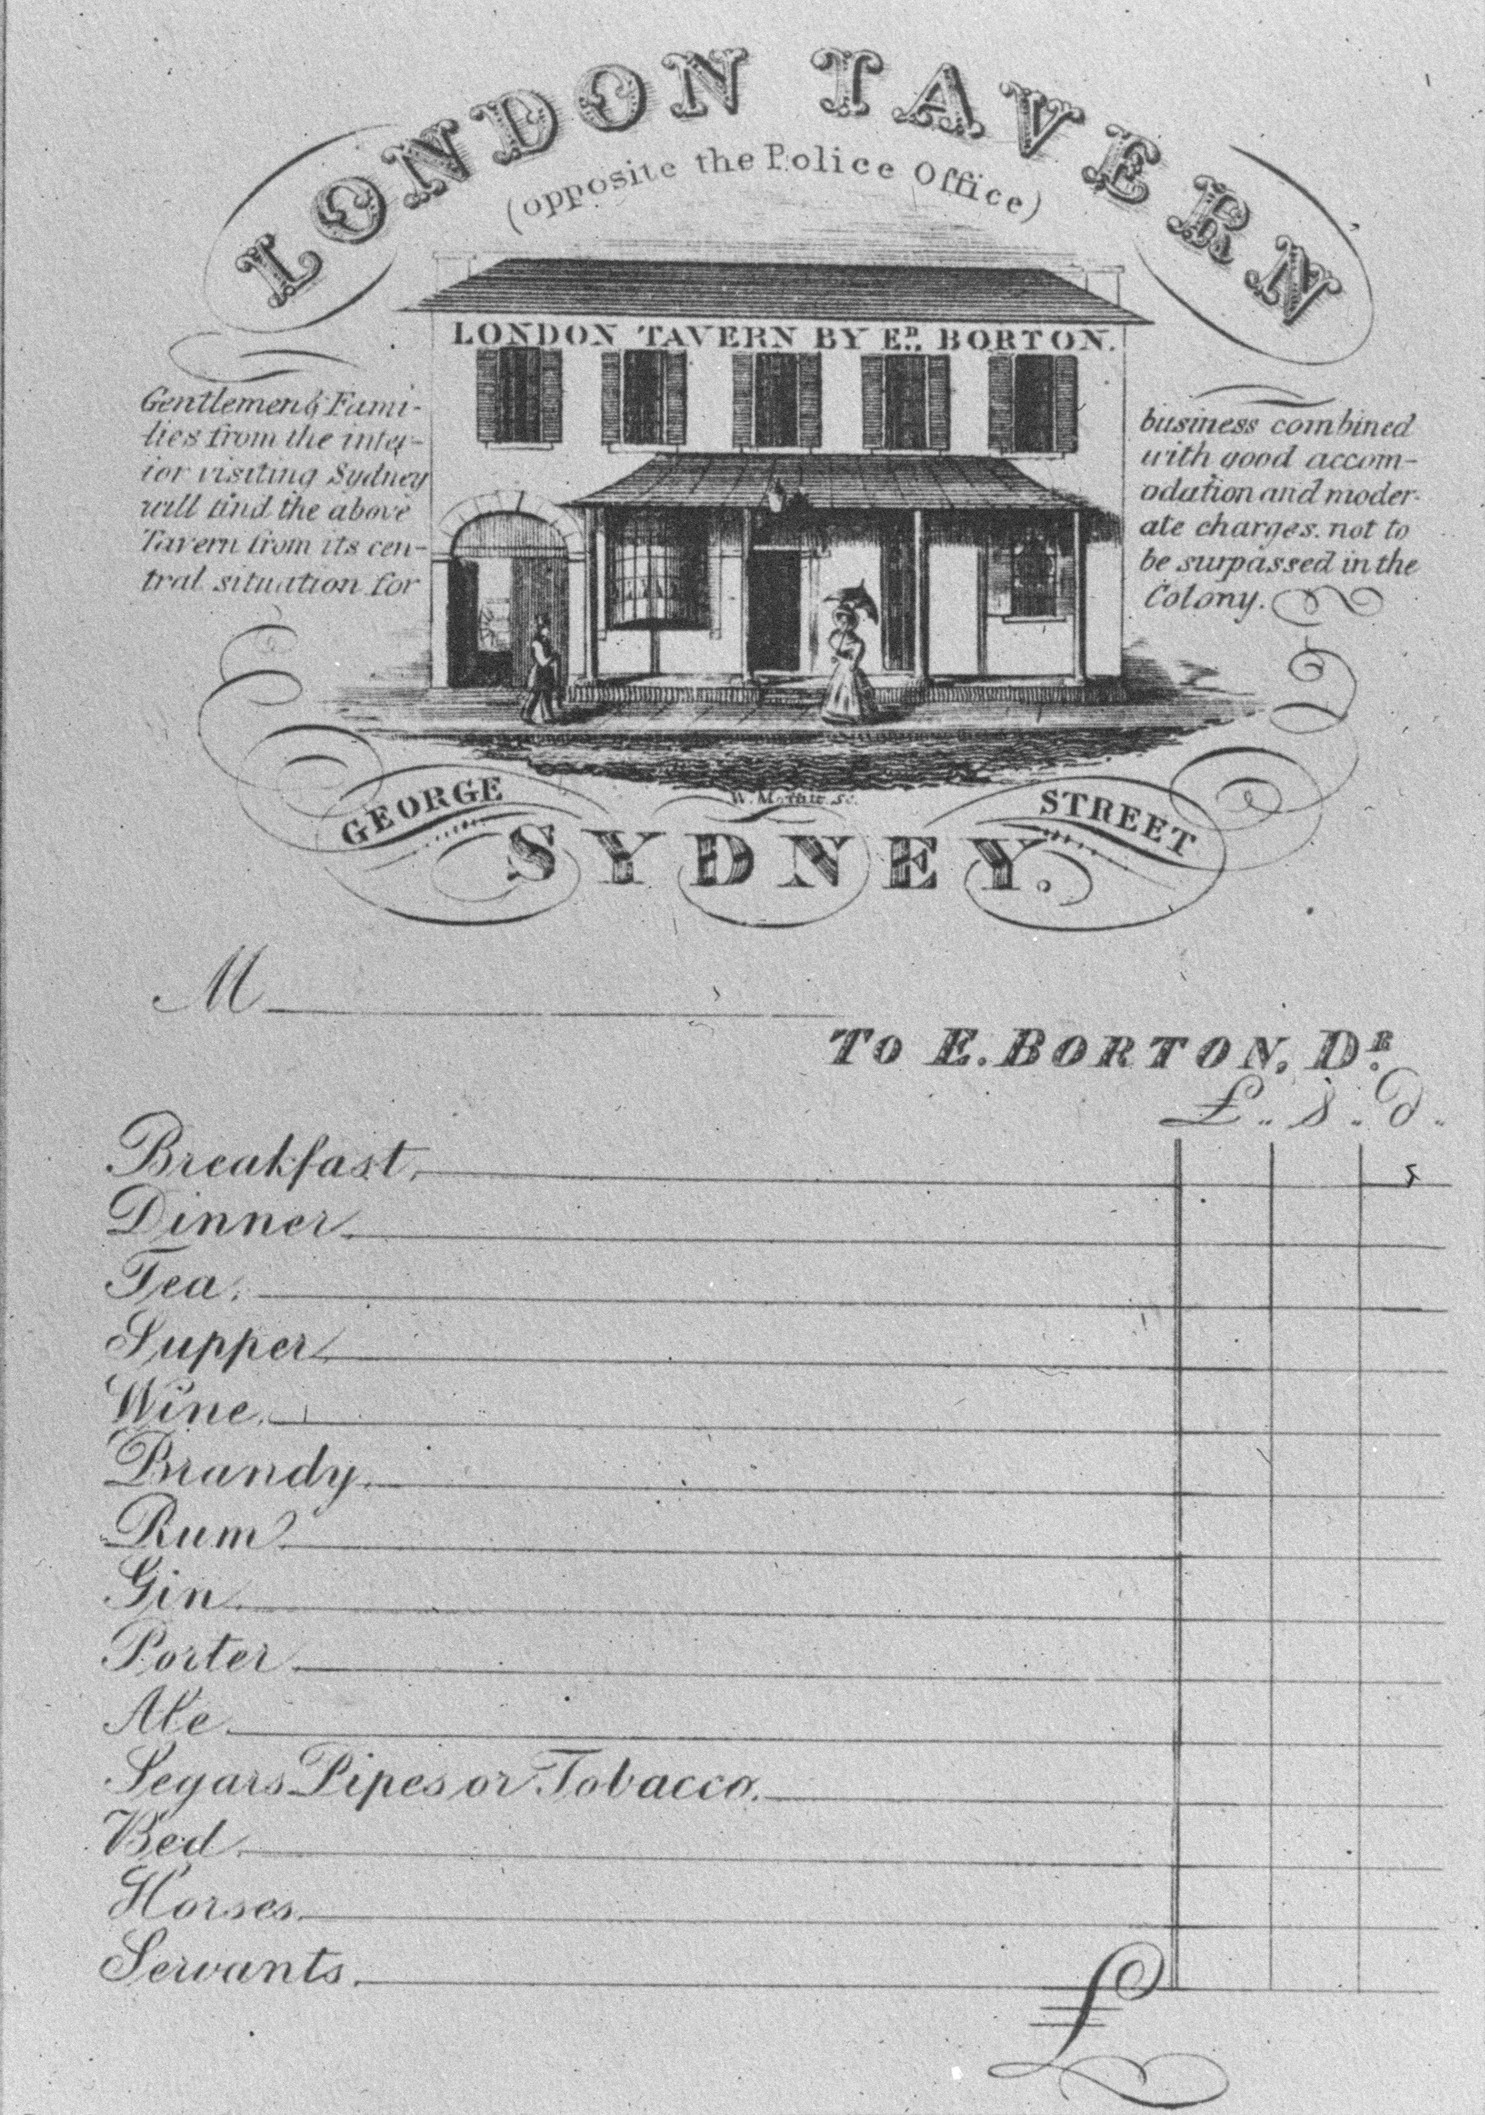 LONDON TAVERN
(opposite the Police Office)
LONDON TAVERN BY ED. BORTON.
Gentlemen & Fami-
lies from the inter-
ior visiting Sydney
will find the above
Tavern from its cen-
tral situation for
business combined
with good accom-
odation and moder-
ate charges. not to
be surpassed in the
Colony.
W. sc.
GEORGE STREET
SYDNEY.
M
To E. BORTON, DR.
£ .. s .. d.
Breakfast,
Dinner
Tea.
Supper
Wine.
Brandy.
Rum
Gin.
Porter
Ale
Segars Pipes or Tobacco.
Bed
Horses
Servants.
£